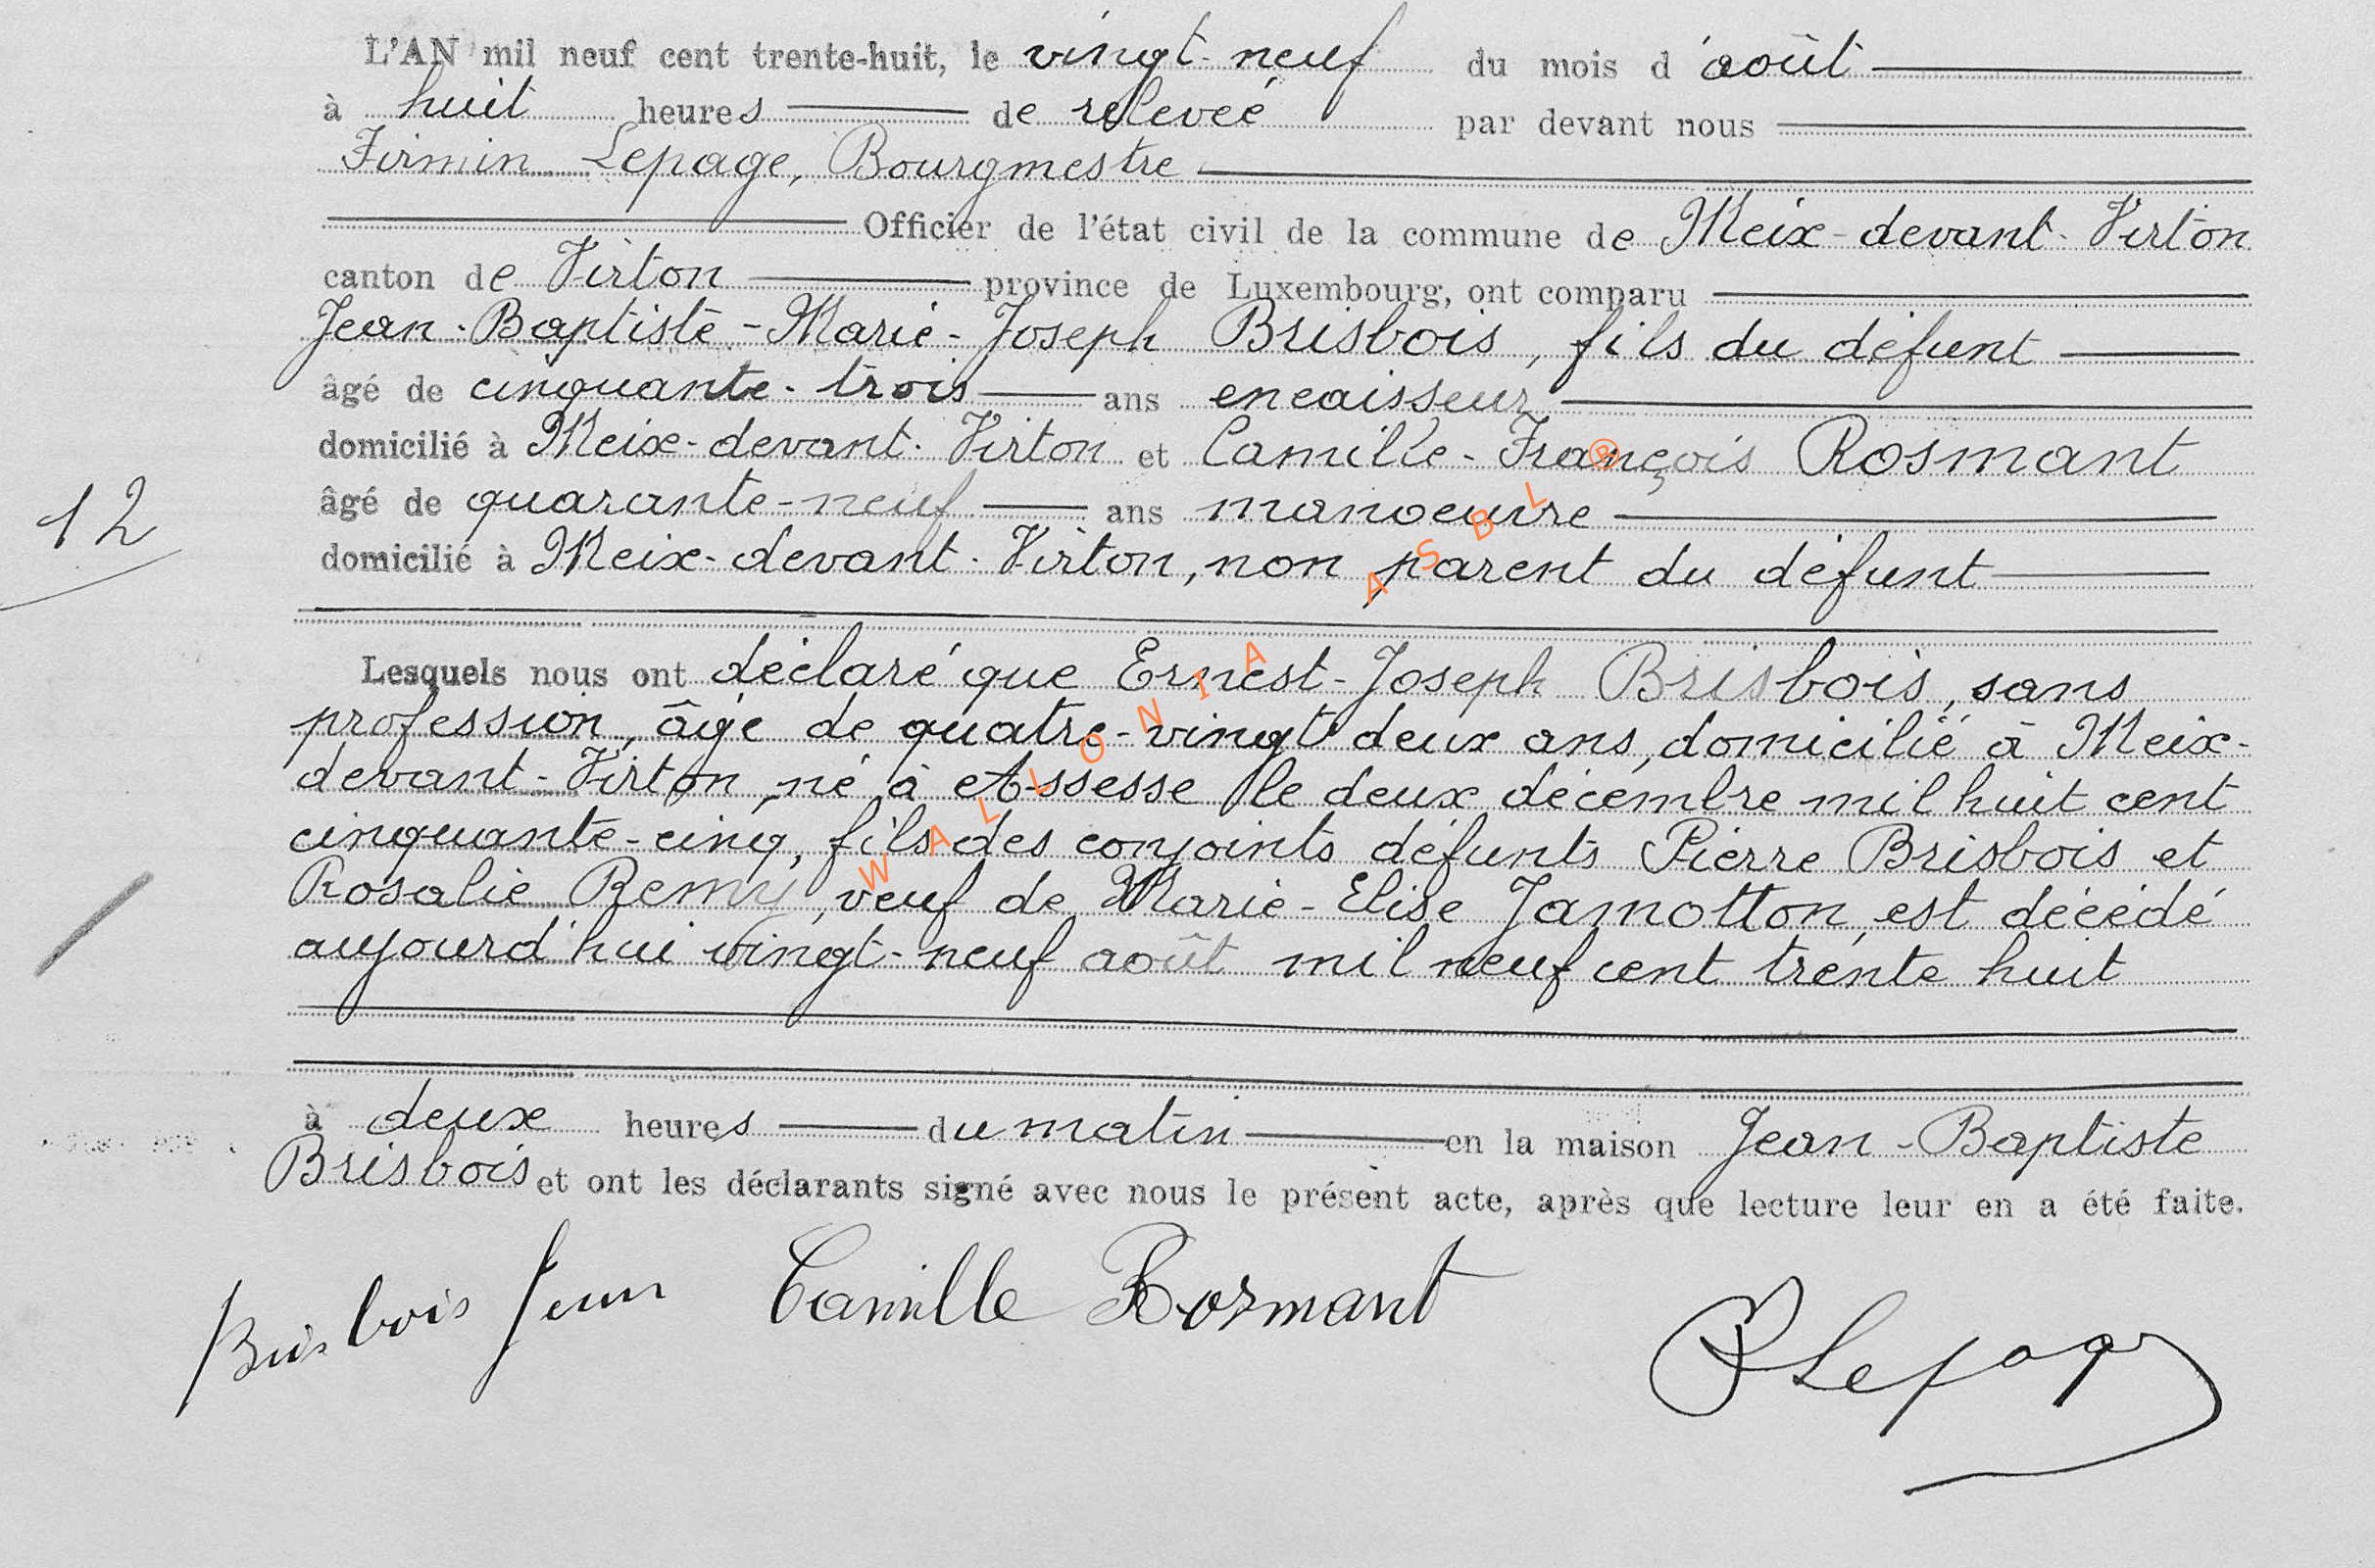 L'AN mil neuf cent trente-huit, le vingt-neuf du mois d'août
à huit heures de relevée par devant nous
Firmin Lepage, Bourgmestre
Officier de l'état civil de la commune de Meix-devant-Virton
canton de Virton province de Luxembourg, ont comparu
Jean-Baptiste-Marie-Joseph Brisbois, fils du défunt
âgé de cinquante-trois ans encaisseur
domicilié à Meix-devant-Virton et Camille-François Rosmant
12 âgé de quarante-neuf ans manoeuvre
domicilié à Meix-devant-Virton, non parent du défunt
Lesquels nous ont déclaré que Ernest-Joseph Brisbois, sans
profession, âgé de quatre-vingt deux ans, domicilié à Meix-
devant-Virton, né à Assesse le deux décembre mil huit cent
cinquante-cinq, fils des conjoints défunts Pierre Brisbois et
Rosalie Remy, veuf de Marie-Elise Jamotton, est décédé
aujourd'hui vingt-neuf août mil neuf cent trente huit
à deux heures du matin en la maison Jean-Baptiste
Brisbois et ont les déclarants signé avec nous le présent acte, après que lecture leur en a été faite.
Brisbois Jean Camille Rosmant FLepage
WALLONIA ASBL ®